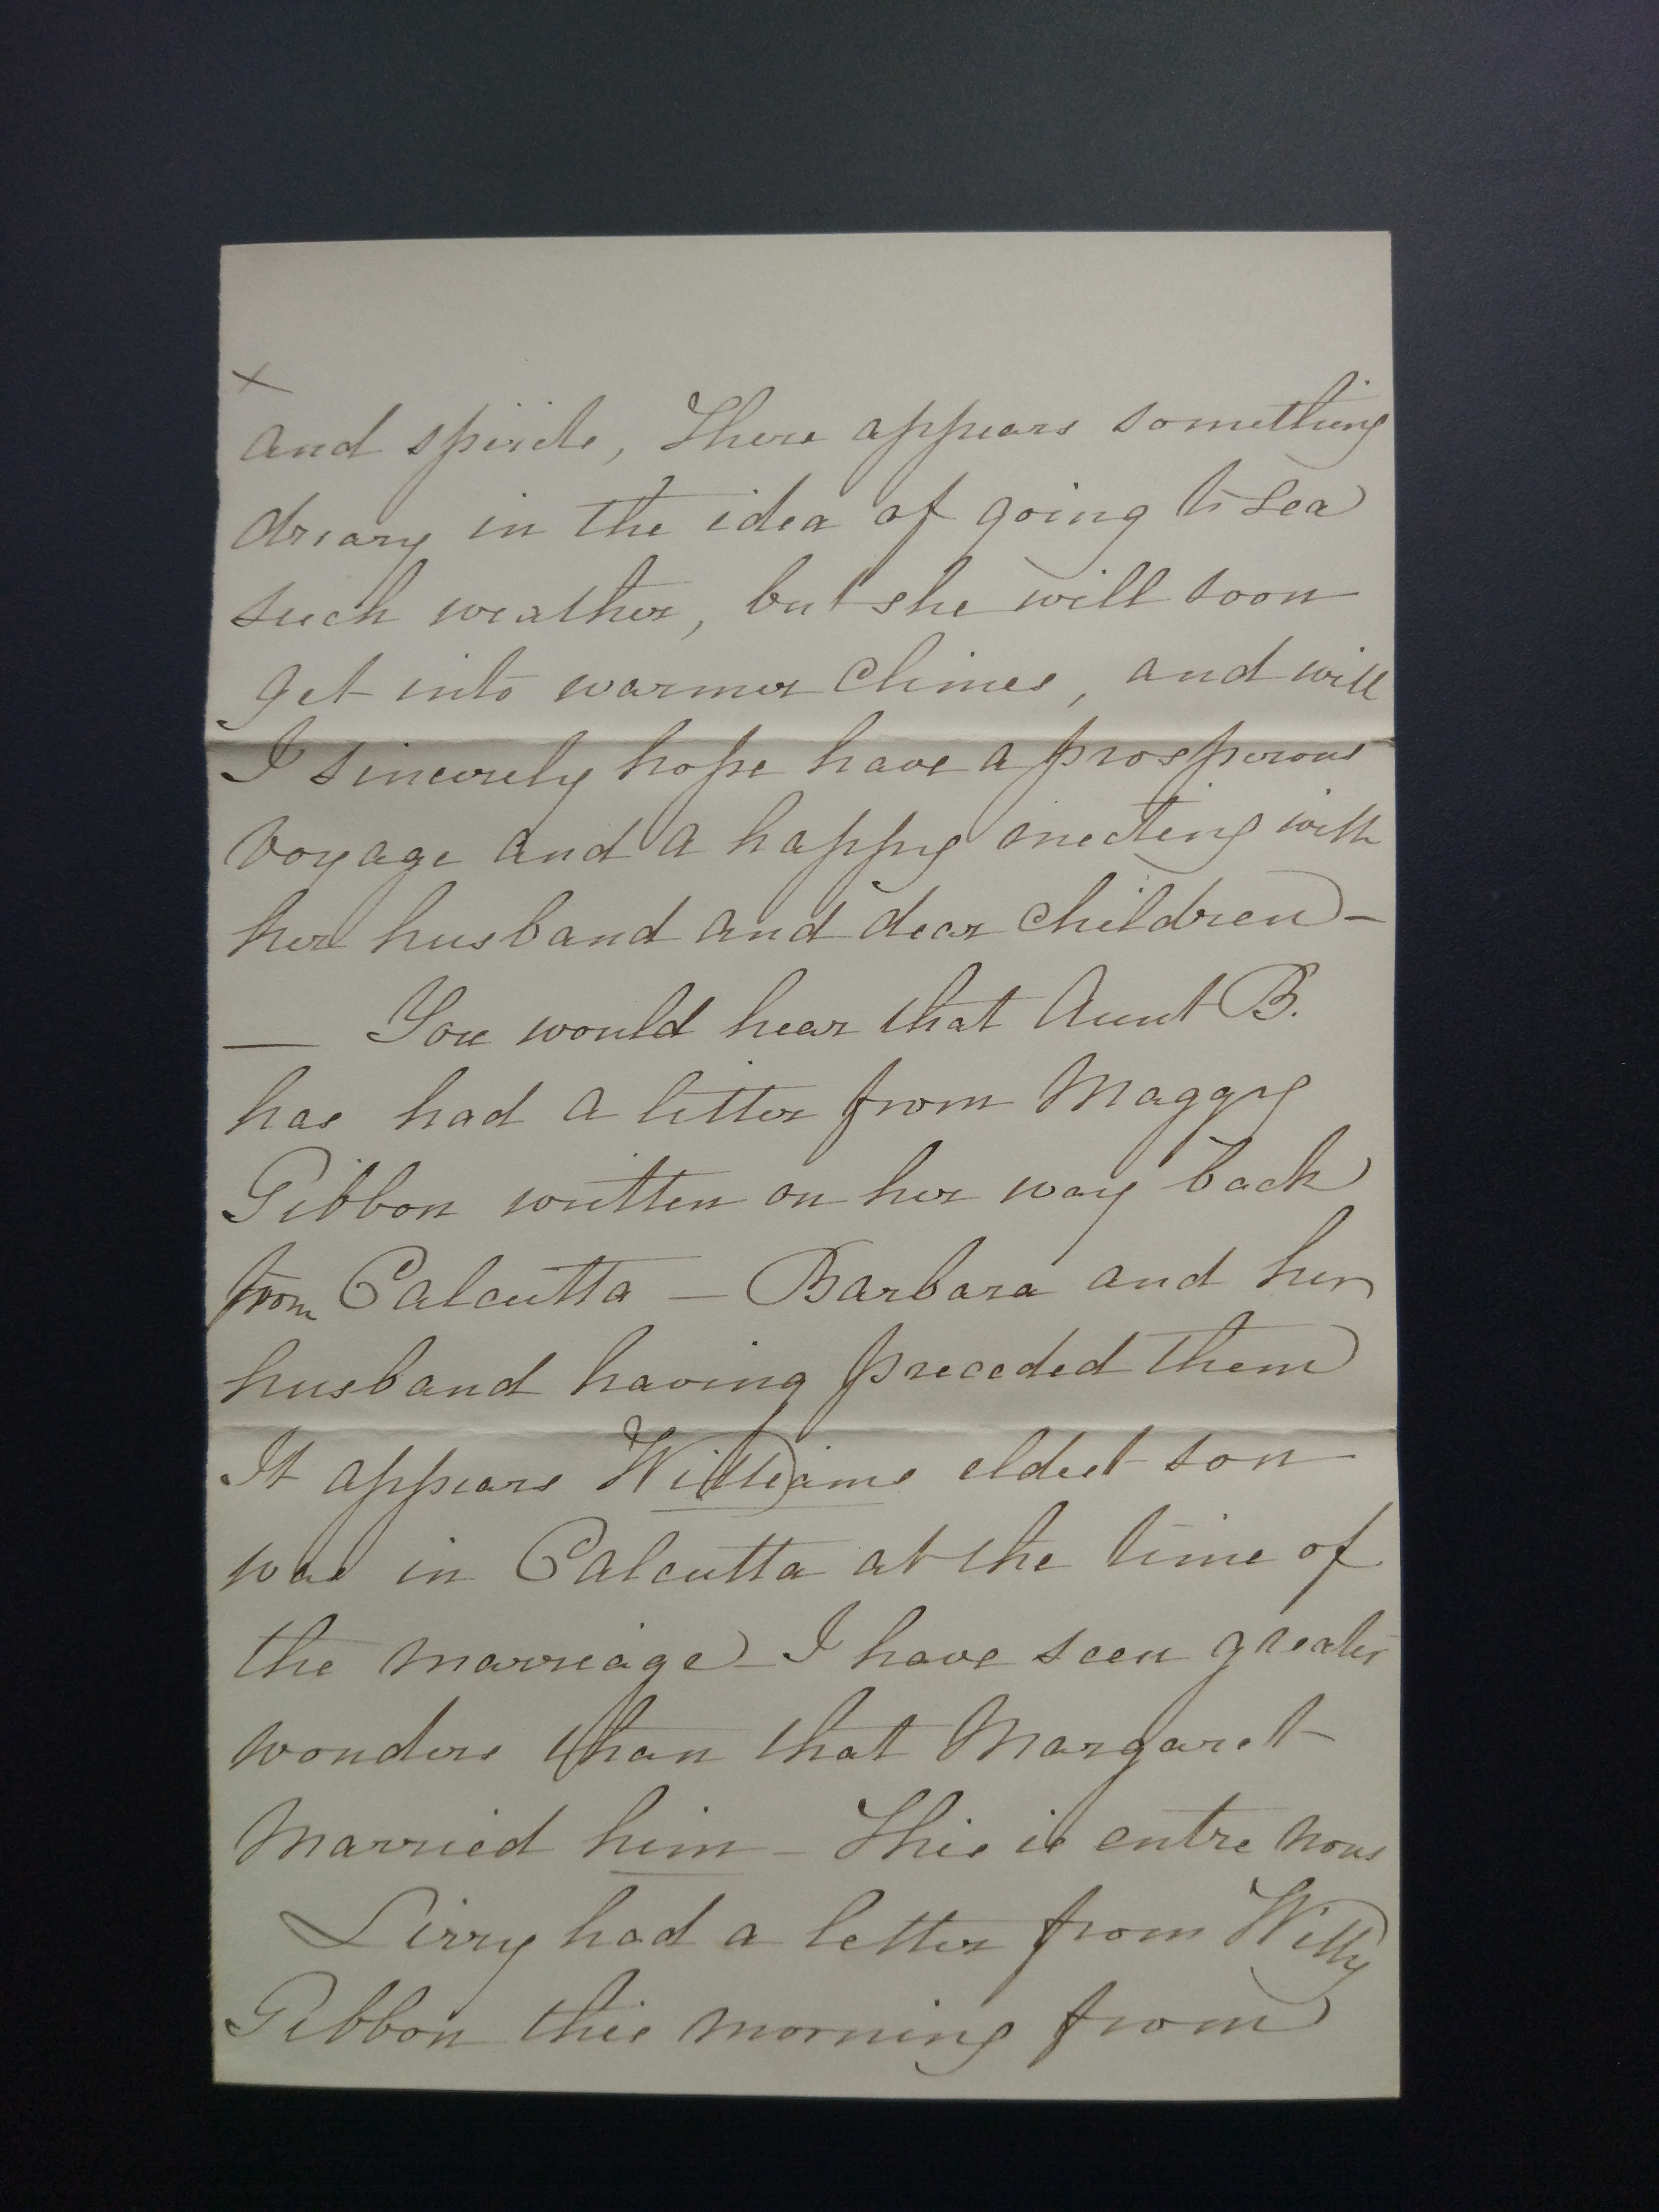 ×
and spirits, There appears something
dreary in the idea of going to sea
such weather, but she will soon
get into warmer Climes, and will
I sincerely hope have a prosperous
voyage and a happy meeting with
her husband and dear children —
— You would hear that Aunt B.
has had a letter from Maggy
Gibbon written on her way back
from Calcutta — Barbara and her
husband having preceded them
It appears Williams eldest son
was in Calcutta at the time of
the marriage — I have seen greater
wonders than that Margaret
Married him — This is entre nous
had a letter from Willy
Gibbon this morning from